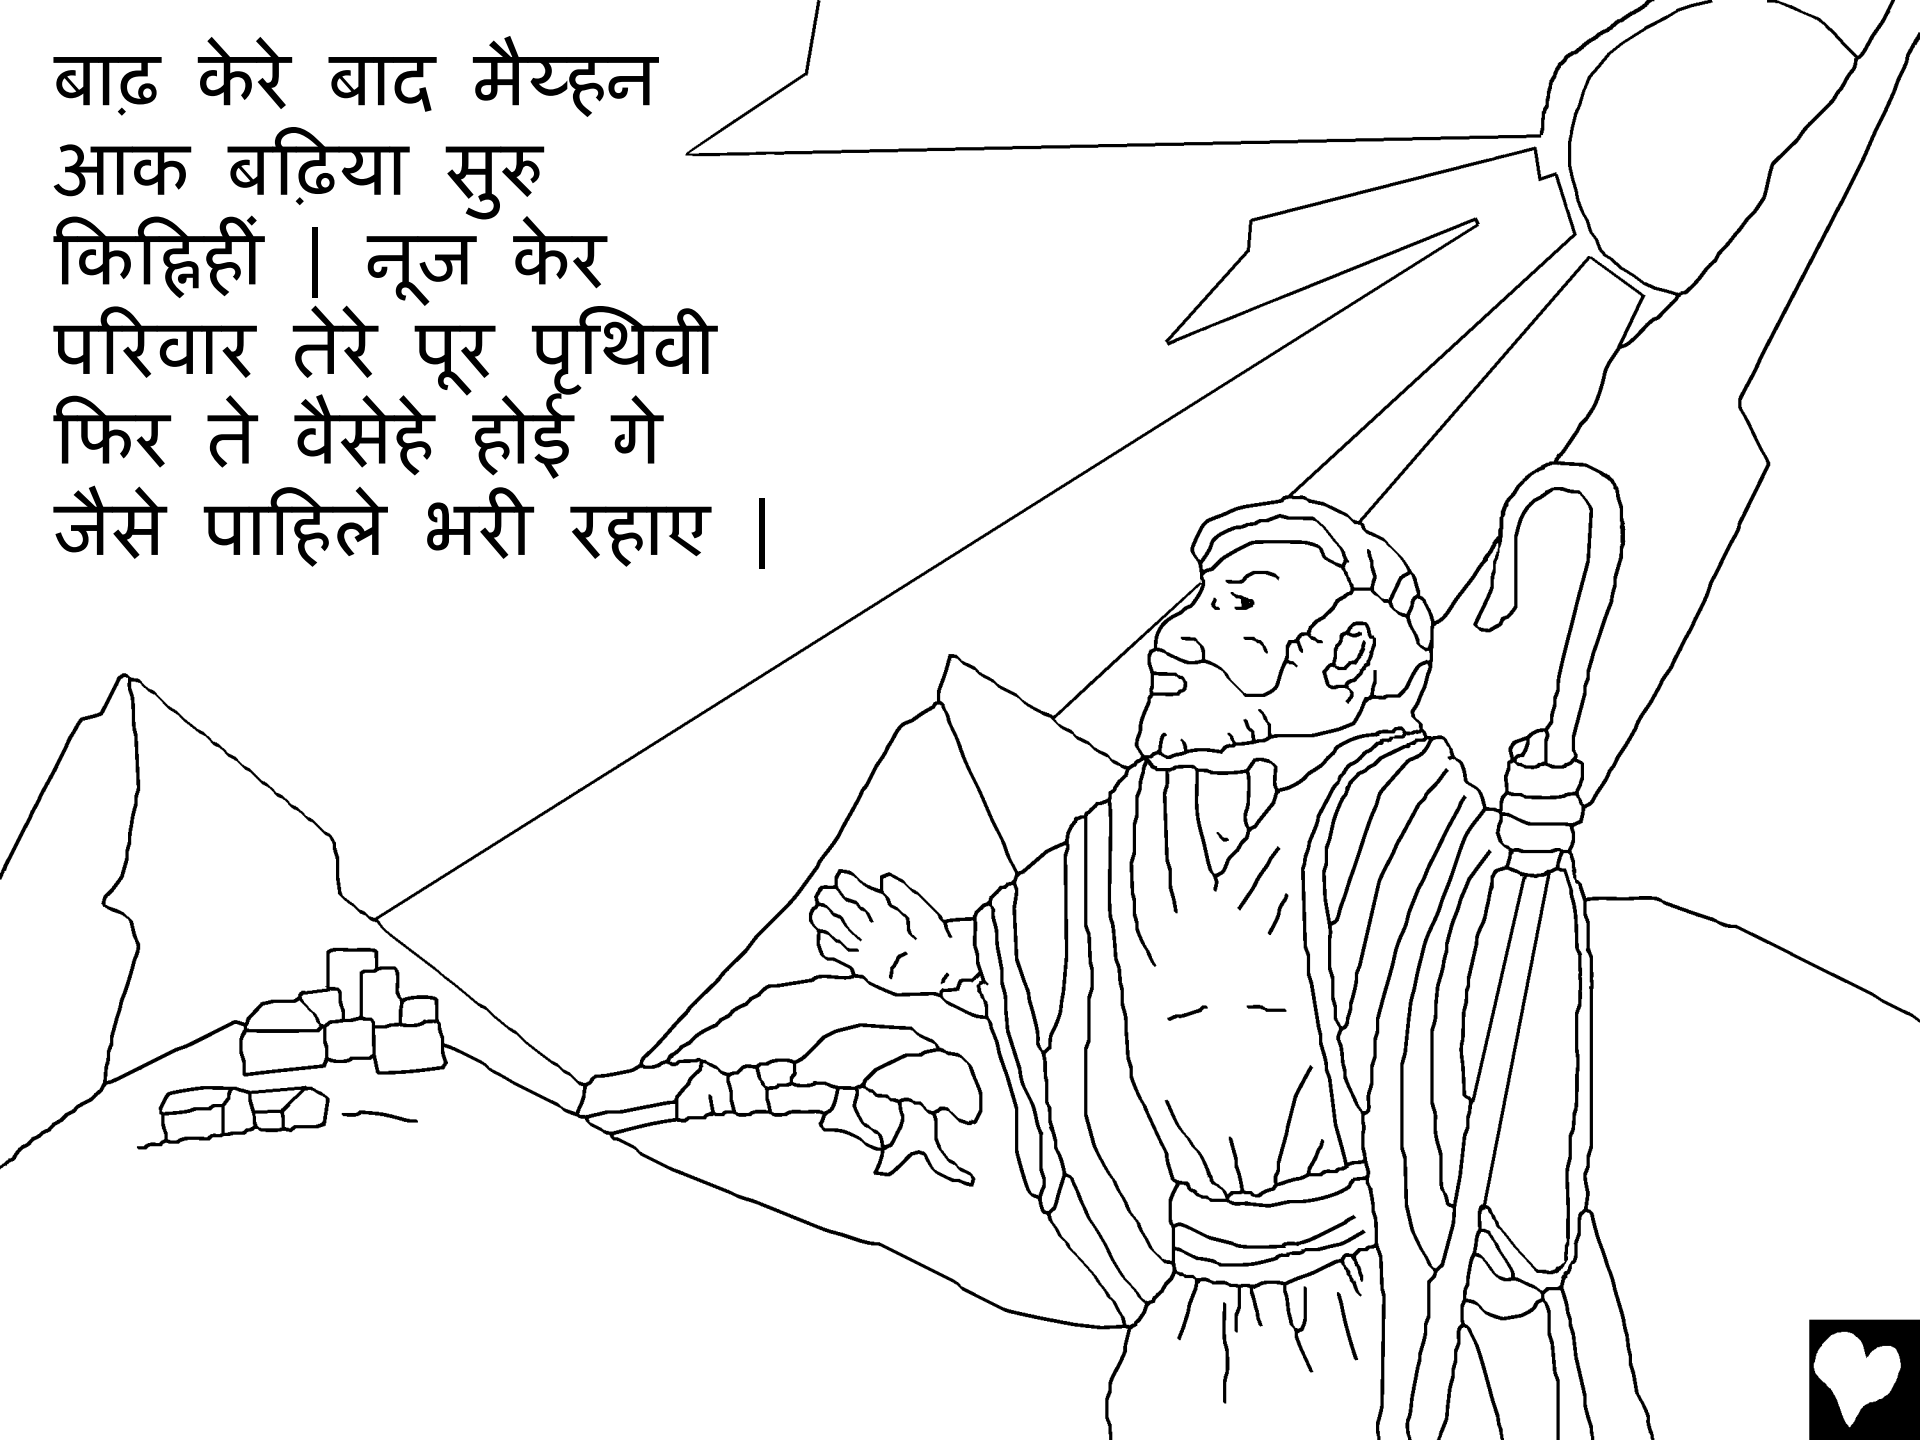 बाढ़ केरे बाद मैय्हन
आक बढ़िया सुरु
किह्निहीं | नूज केर
परिवार तेरे पूर पृथिवी
फिर ते वैसेहे होई गे
जैसे पाहिले भरी रहाए |